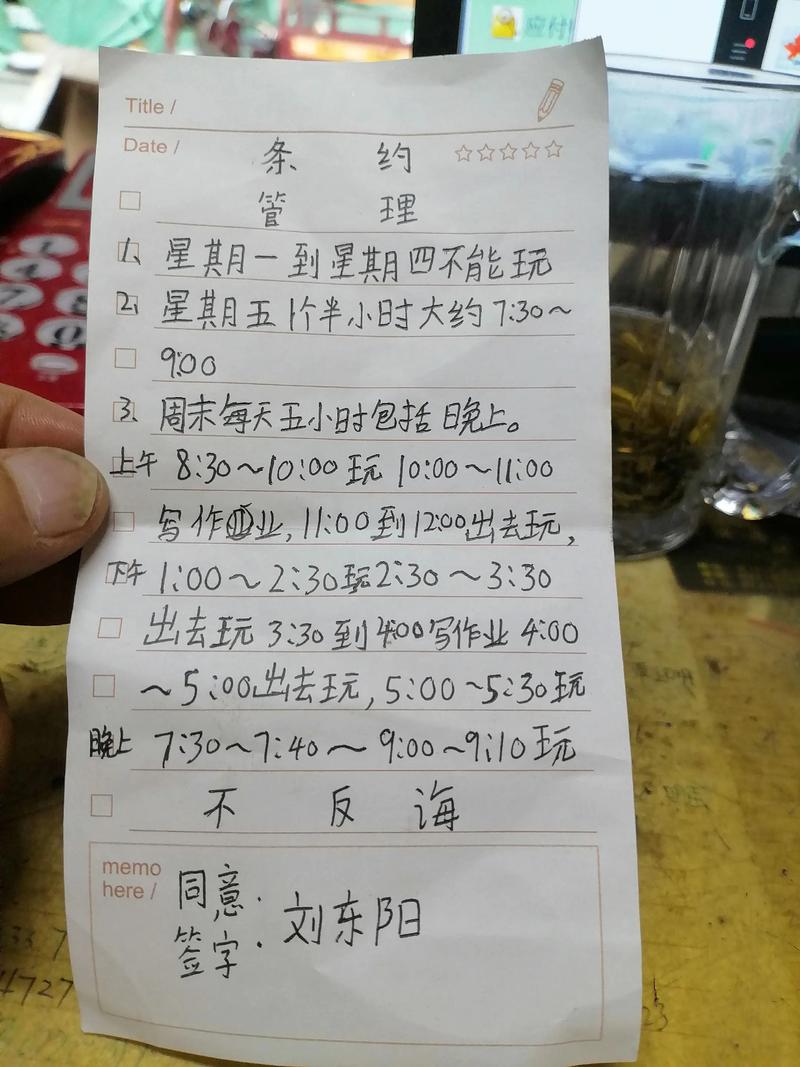 应付
Title /
Date /
条 约
管 理
1、星期一到星期四不能玩
2、星期五1个半小时大约7:30~
9:00
3、周末每天五小时包括晚上。
上午 8:30~10:00玩 10:00~11:00
写作业,11:00到12:00出去玩,
下午 1:00~2:30玩2:30~3:30
出去玩 3:30到4:00写作业 4:00
~5:00出去玩,5:00~5:30玩
晚上 7:30~7:40~9:00~9:10玩
不 反 诲
memo
here /
同意:
签字.
刘东阳
4727